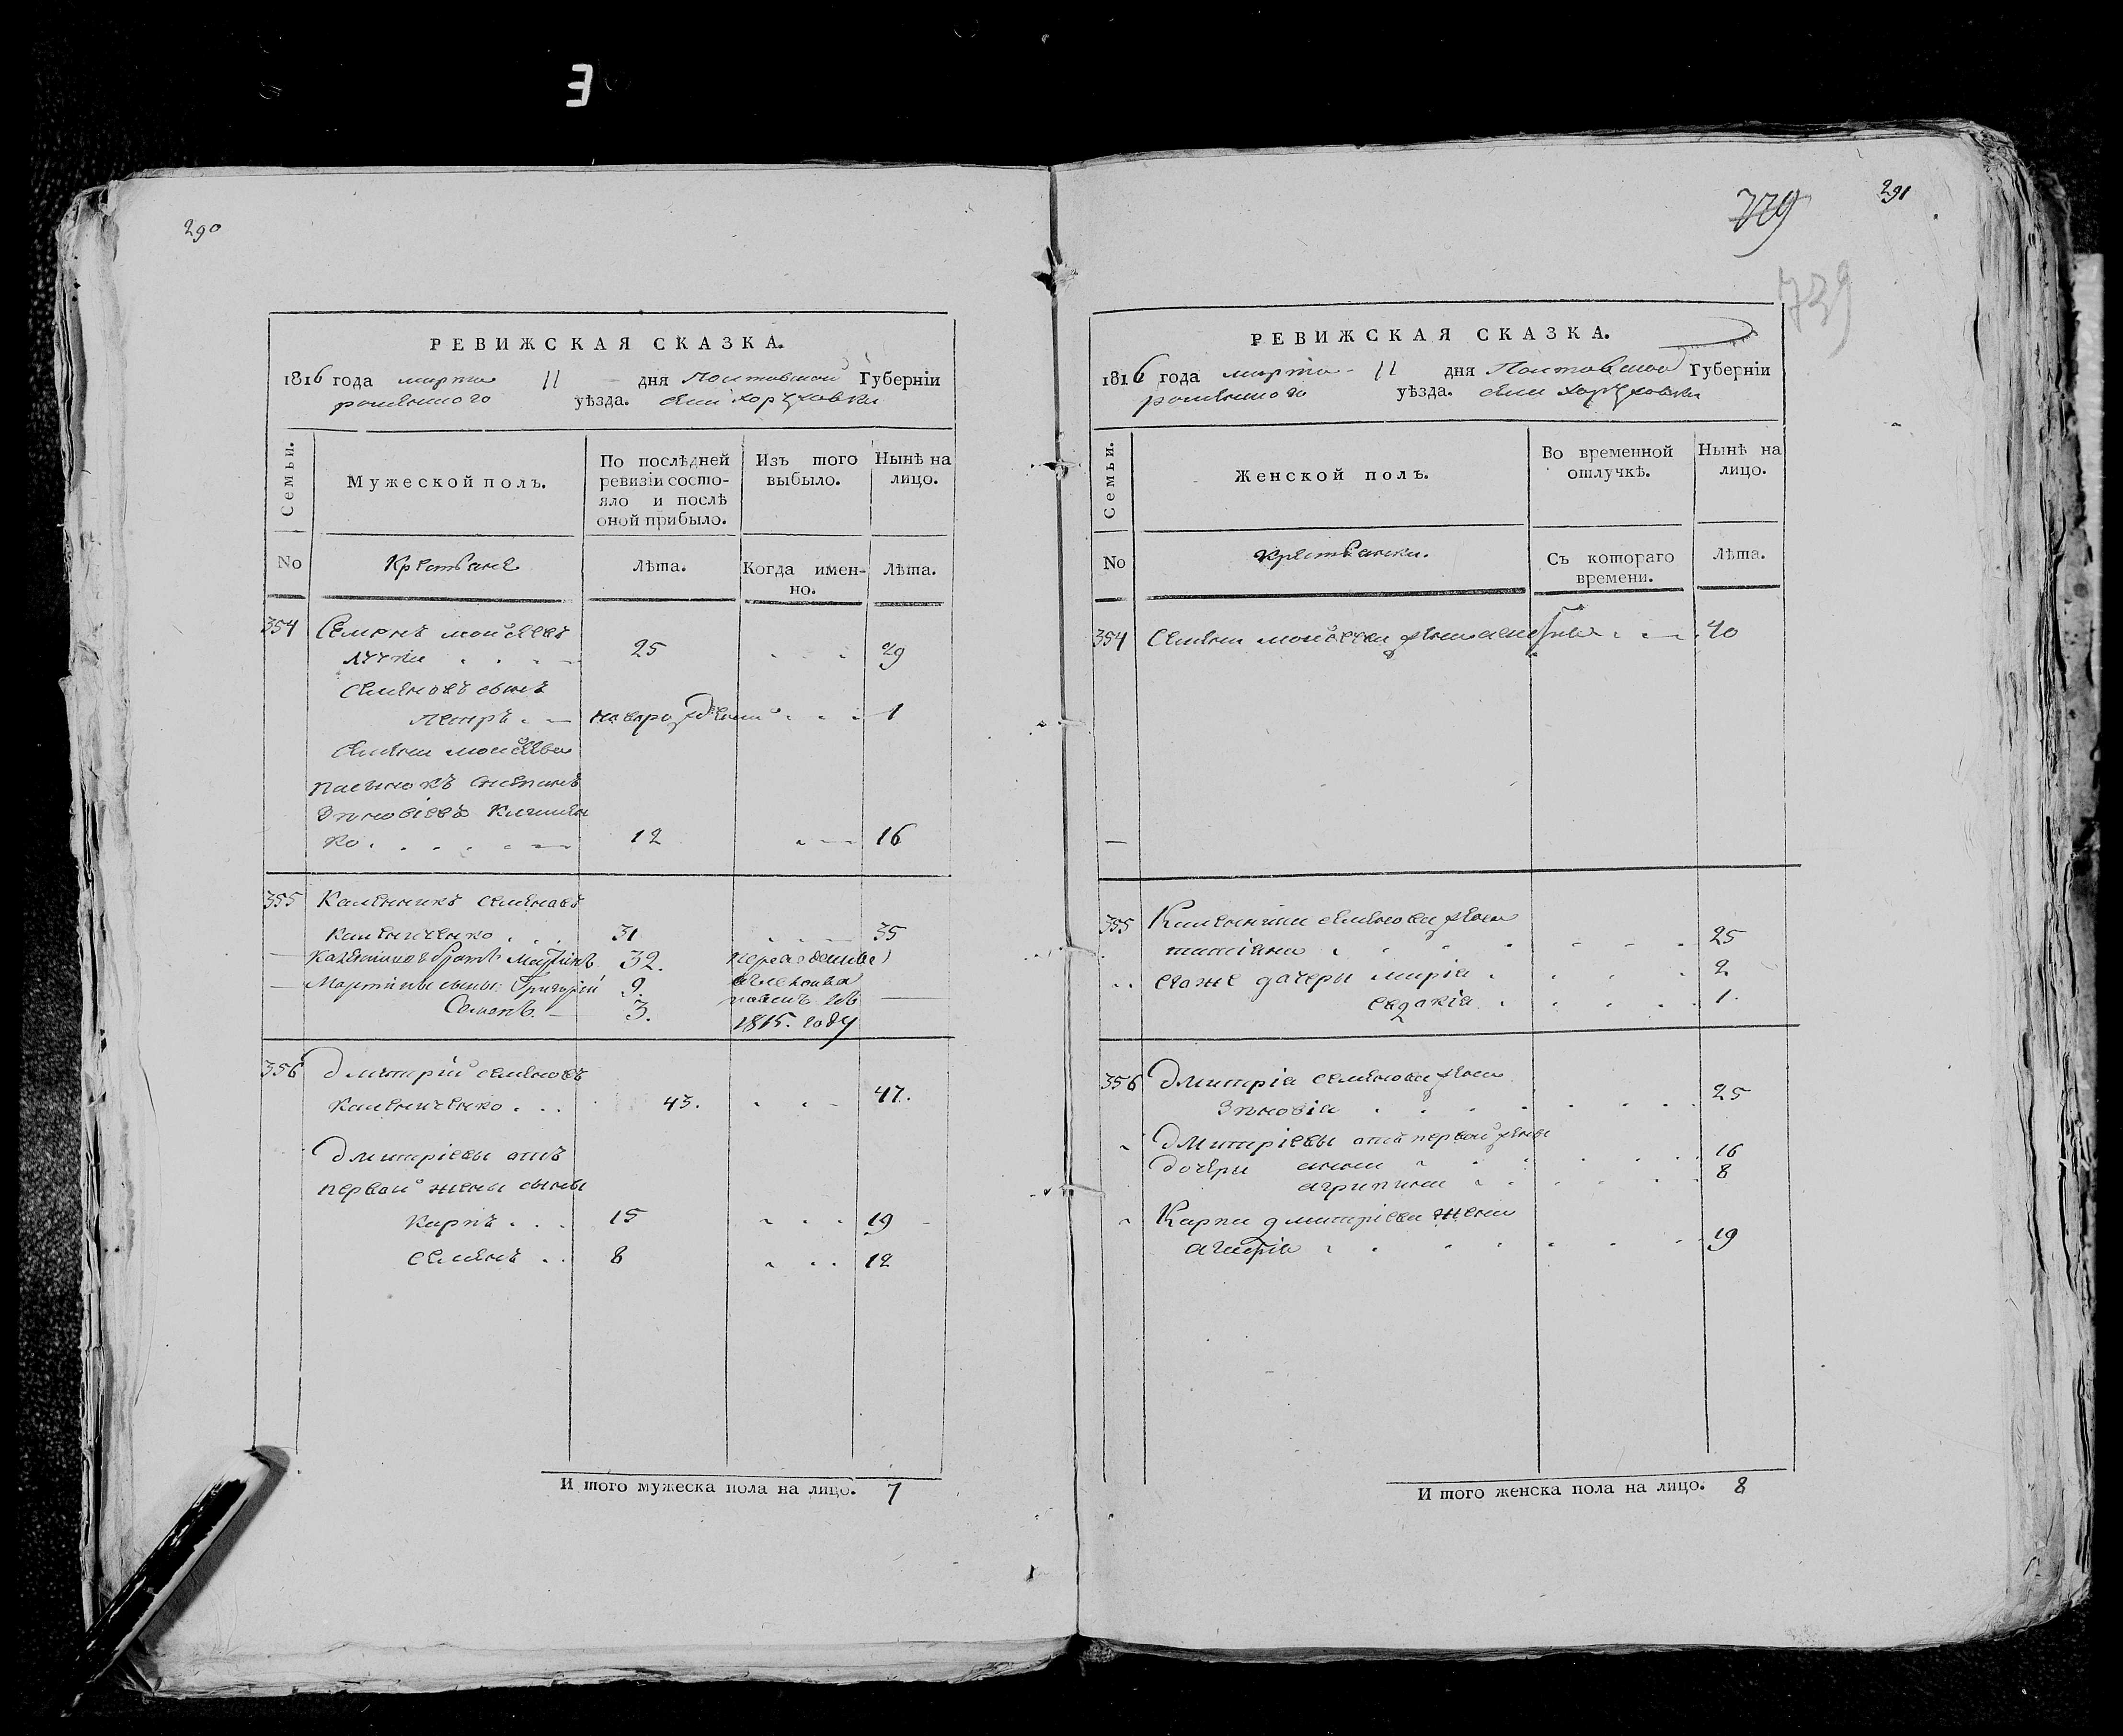 290
РЕВИЖСКАЯ СКАЗКА.
1816 года марта 11 дня Полтавской Губерніи
роменского уѣзда. села хоружовки
Семьи.
Мужеской полъ.
По послѣдней ревизіи состо-
яло и послѣ
оной прибыло.
Изъ того выбыло.
Нынѣ на лицо.
No
Крестьяне
Лѣта.
Когда имен-
но.
Лѣта.
354 Семенъ моисеевъ
25 29
Семеновъ сынъ
петръ новорожденный 1
Семена моисеева
пасынокъ степанъ
зѣновіевъ
ко 12 16
355 Каленикъ семеновъ
31 35
Калениковъ братъ Мартинъ 32.
Мартина сыны Григорій 9.
Семенъ 3.
1815. году
356 Дмитрій семеновъ
43. 47.
Дмитріевы отъ
первой жены сыны
Карпъ 15 19
семенъ 8 12
И того мужеска пола на лицо. 7
291
729
739
РЕВИЖСКАЯ СКАЗКА.
1816 года марта 11 дня Полтавской Губерніи
роменского уѣзда. села хоружовки
Семьи.
Женской полъ.
Во временной отлучкѣ.
Нынѣ на лицо.
No
крестьянки.
Съ котораго времени.
Лѣта.
354 Семена моисеева жена 40
355 Каленика семенова жена
татіана 25
егоже дочери марія 2
евдокія 1.
356 Дмитрія семенова жена
зѣновія 25
Дмитріевы отъ первой жены
дочери анна 16
агрипина 8
Карпа дмитріева жена
19
И того женска пола на лицо. 8